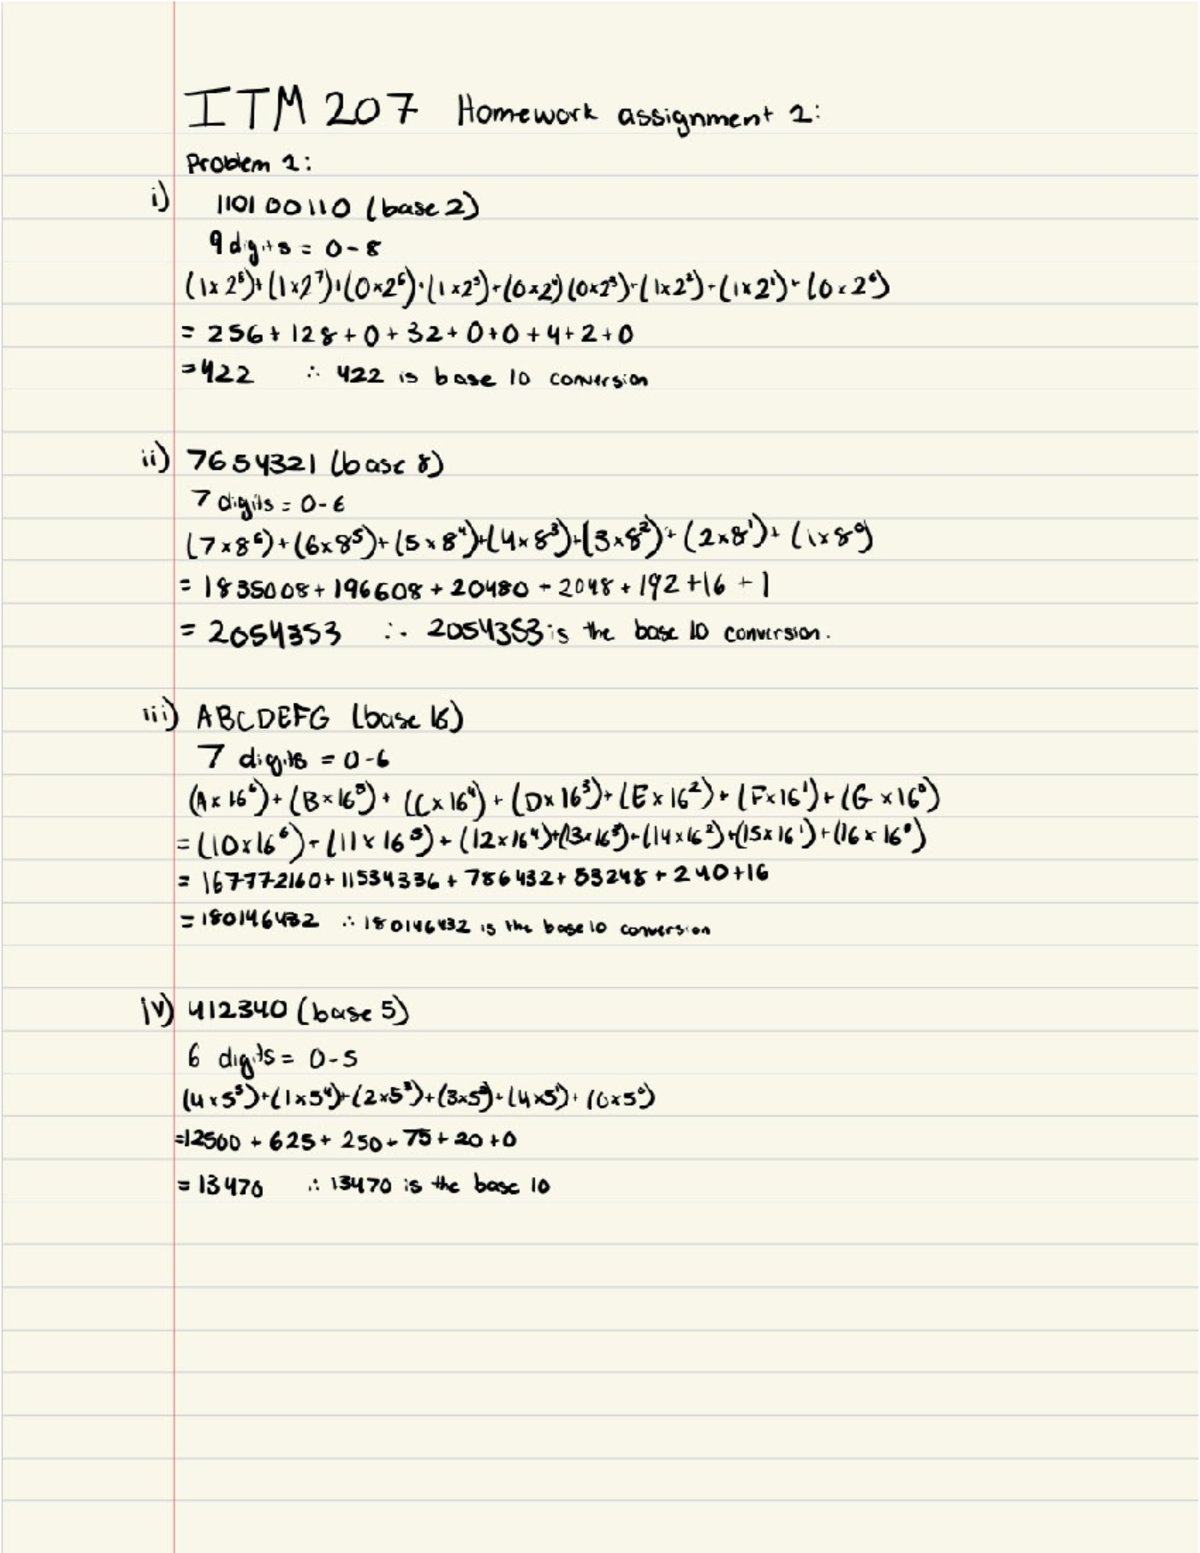 ITM 207 Homework assignment 1:
Problem 1:
i) 110100110 (base 2)
9 digits = 0-8
(1x2⁸)+(1x2⁷)+(0x2⁶)+(1x2⁵)+(0x2⁴)(0x2³)+(1x2²)+(1x2¹)+(0x2⁰)
= 256+128+0+32+0+0+4+2+0
=422 ∴ 422 is base 10 conversion
ii) 7654321 (base 8)
7 digits = 0-6
(7x8⁶)+(6x8⁵)+(5x8⁴)+(4x8³)+(3x8²)+(2x8¹)+(1x8⁰)
= 1835008+196608+20480+2048+192+16+1
= 2054353 ∴ 2054353 is the base 10 conversion.
iii) ABCDEFG (base 16)
7 digits = 0-6
(Ax16⁶)+(Bx16⁵)+(Cx16⁴)+(Dx16³)+(Ex16²)+(Fx16¹)+(Gx16⁰)
=(10x16⁶)+(11x16⁵)+(12x16⁴)+(13x16³)+(14x16²)+(15x16¹)+(16x16⁰)
= 167772160+11534336+786432+53248+240+16
=180146432 ∴ 180146432 is the base 10 conversion
iv) 412340 (base 5)
6 digits = 0-5
(4x5⁵)+(1x5⁴)+(2x5³)+(3x5²)+(4x5¹)+(0x5⁰)
=12500+625+250+75+20+0
=13470 ∴ 13470 is the base 10